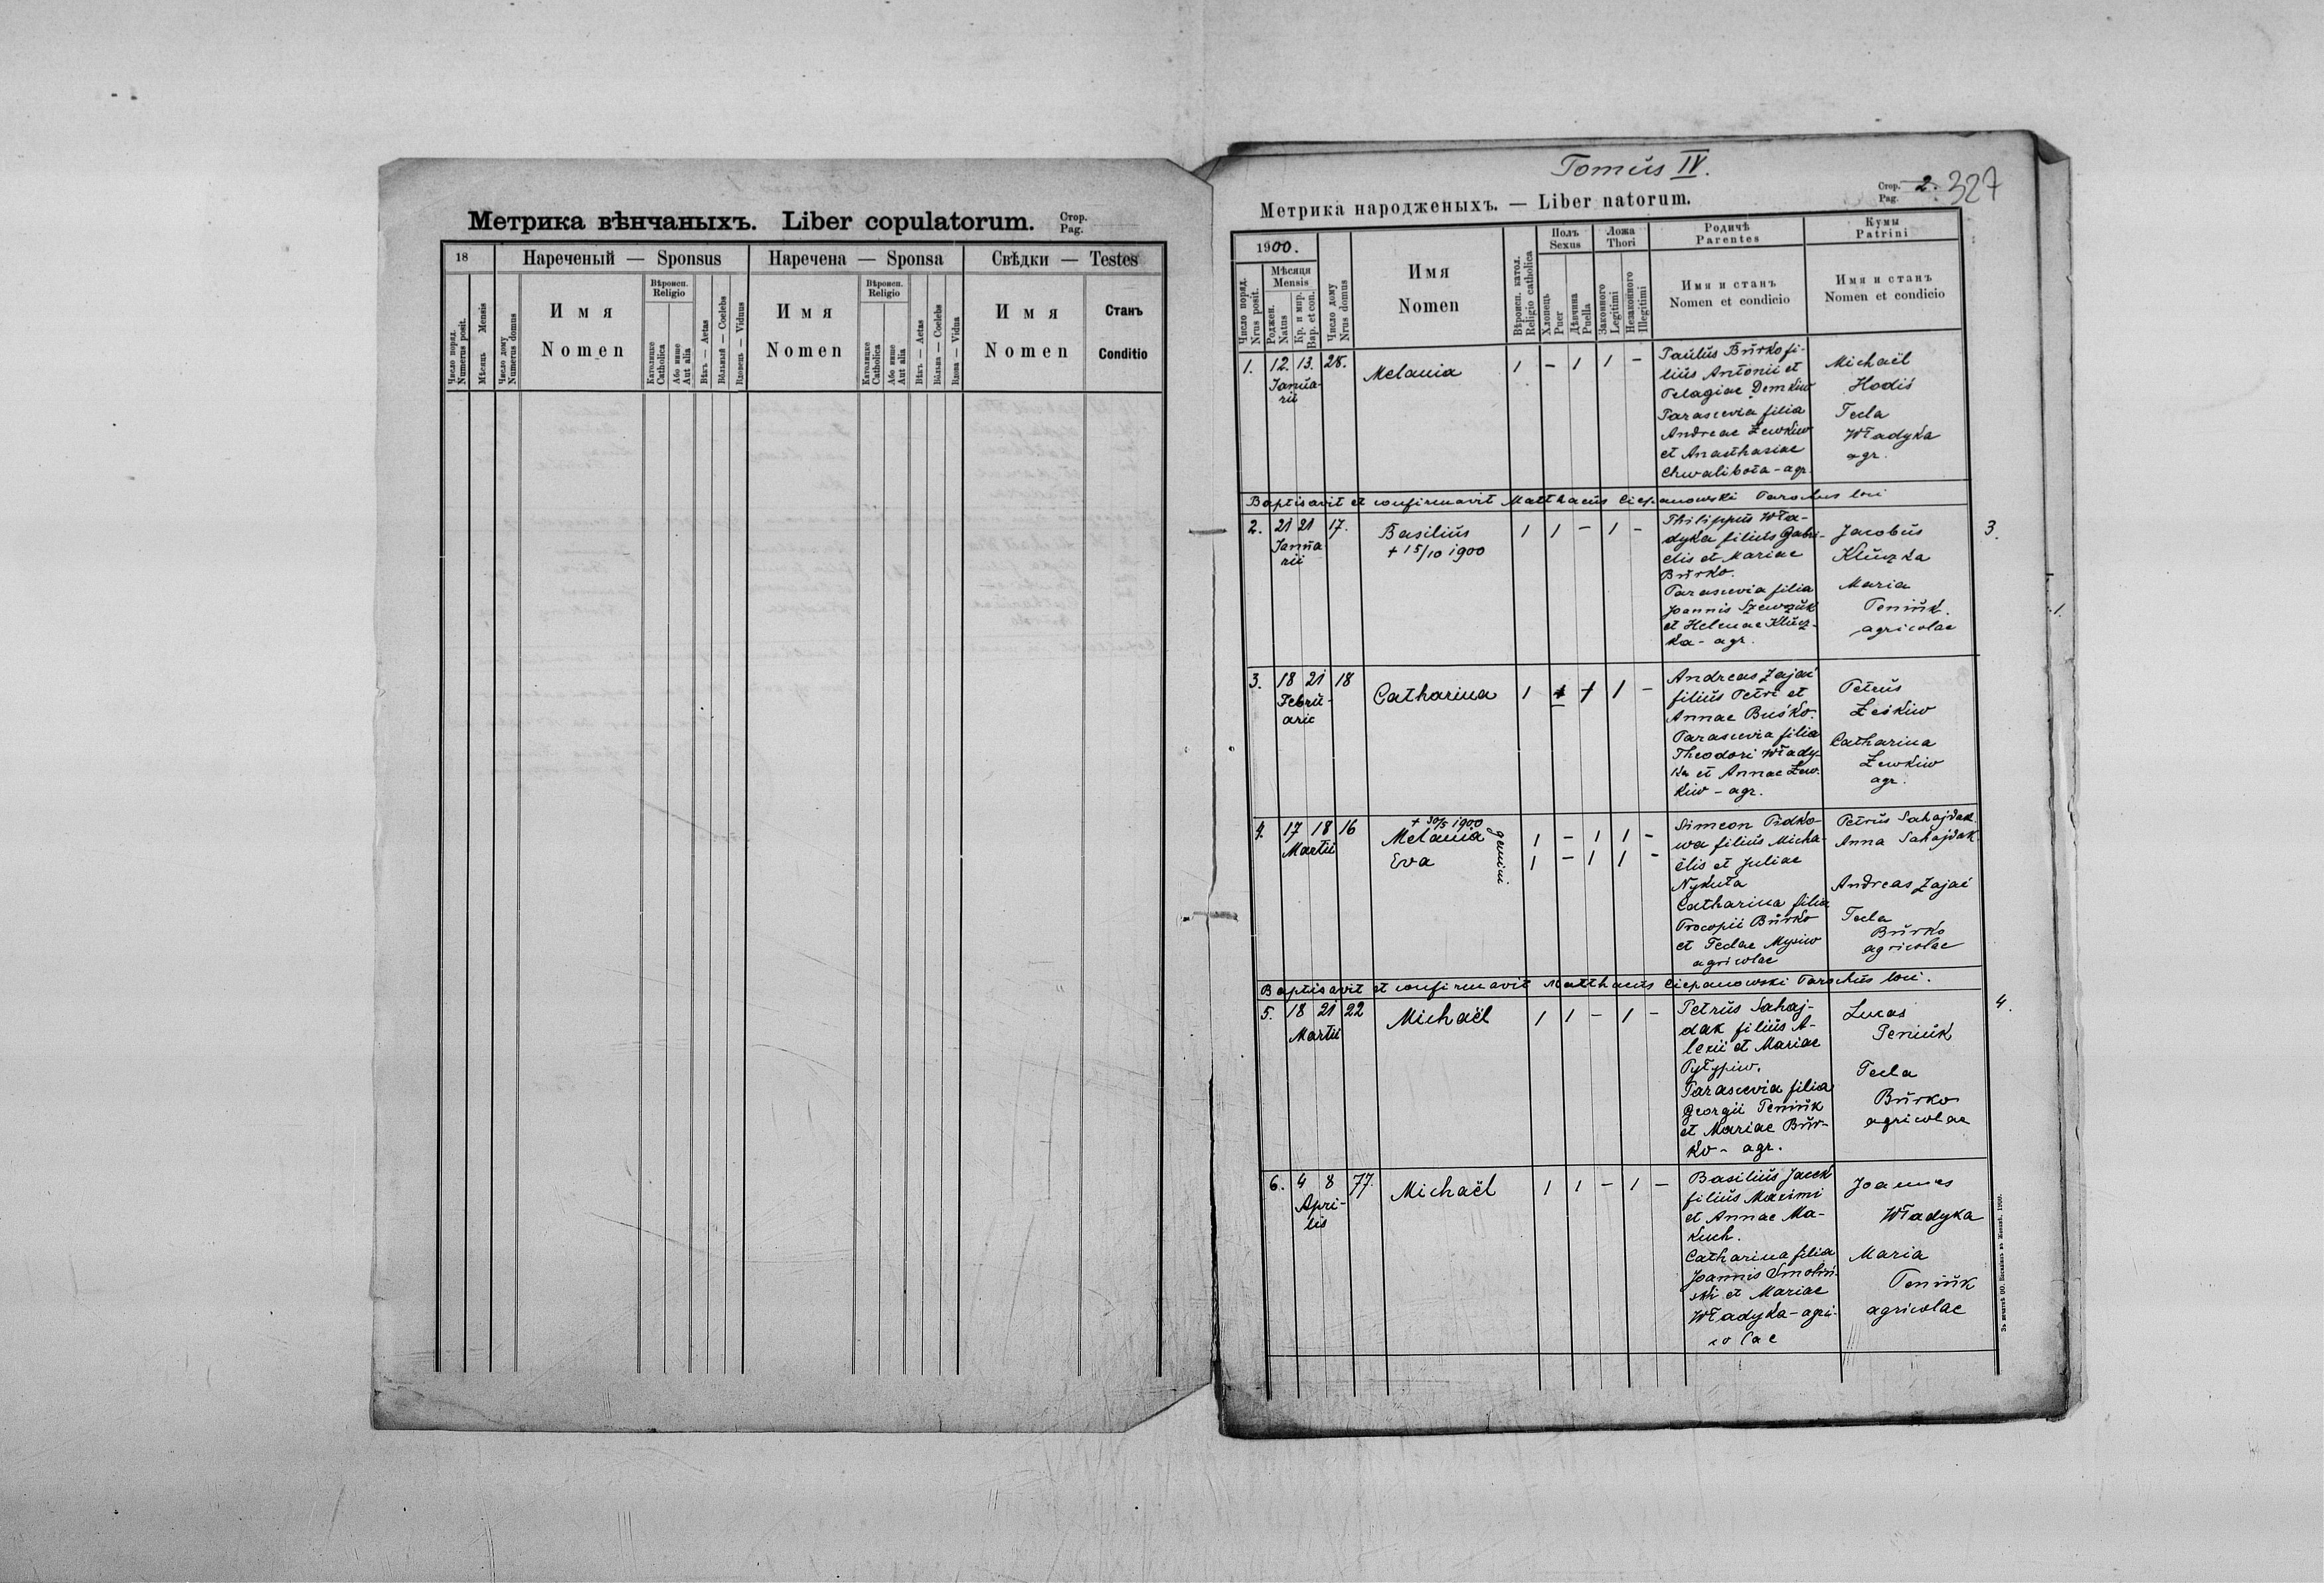 Метрика вѣнчаныхъ. Liber copulatorum. Стор. Pag.
18
Нареченый — Sponsus
Наречена — Sponsa
Свѣдки — Testes
Число поряд. Numerus posit.
Мѣсяць Mensis
Число дому Numerus domus
Имя
Nomen
Вѣроисп. Religio
Католицке Catholica
Або инше Aut alia
Вѣкъ — Aetas
Вôльный — Coelebs
Вдовець — Viduus
Имя
Nomen
Вѣроисп. Religio
Католицке Catholica
Або инше Aut alia
Вѣкъ — Aetas
Вôльна — Coelebs
Вдова — Vidua
Имя
Nomen
Станъ
Conditio
Tomŭs IV.
Метрика народженыхъ. — Liber natorum.
Стор. Pag. 2. 327
1900.
Число поряд. Nrus posit.
Мѣсяця Mensis
Роджен. Natus
Кр. и мир. Bap. et con.
Число дому Nrus domus
Имя
Nomen
Вѣроисп. катол. Religio catholica
Полъ Sexus
Хлопець Puer
Дѣвчина Puella
Ложа Thori
Законного Legitimi
Незаконного Illegitimi
Родичѣ Parentes
Имя и станъ
Nomen et condicio
Кумы Patrini
Имя и станъ
Nomen et condicio
1. 12. 13. 28.
Janŭa-
rii
Melania
1 - 1 1 -
Paulŭs Bŭrko fi-
liŭs Antonii et
Pelagiae Demkiw
Parascevia filia
Andreae Lewkiw
et Anasthasiae
Chwalibota - agr.
Michaël
Hodiś
Tecla
Władyka
agr.
Baptisavit et confirmavit Matthaeŭs Ciepanowski Parochus loci
2. 21 21 17.
Janŭa
rii
Basiliŭs
+ 15/10 1900
1 1 - 1 -
Philippŭs Wła-
dyka filiŭs Gabri-
elis et Mariae
Bŭrko.
Parascevia filia
Joannis Szewczŭk
et Helenae Klŭcz-
ka - agr.
Jacobŭs
Klŭczka
Maria
Peniŭk.
agricolae
3.
3. 18 21 18
Febrŭ-
arii
Catharina
1 1 -
Andreas Zajać
filiŭs Petri et
Annae Buśko.
Parascevia filia
Theodori Włady-
ka et Annae Lew-
kiw - agr.
Petrŭs
Leśkiw
Catharina
Lewkiw
agr.
4. 17 18 16
Martii
+ 30/5 1900
Melania
Eva
gemini
1 - 1 1 -
1 - 1 1 -
Simeon Pidko-
wa filiŭs Micha-
ëlis et Juliae
Nykuta
Catharina filia
Procopii Bŭrko
et Teclae Mysiw
agricolae
Petrŭs Sahajdak.
Anna Sahajdak
Andreas Zajać
Tecla
Bŭrko
agricolae
Baptisavit et confirmavit Matthaeŭs Ciepanowski Parochŭs loci.
5. 18 21 22
Martii
Michaël
1 1 - 1 -
Petrŭs Sahaj-
dak filiŭs A-
lexii et Mariae
Parascevia filia
Georgii Peniŭk
et Mariae Bŭr-
ko - agr.
Lucas
Peniŭk
Tecla
Bŭrko
agricolae
4.
6. 4 8 77.
Apri-
lis
Michaël
1 1 - 1 -
Basiliŭs Jacek
filiŭs Maximi
et Annae Ma-
kuch.
Catharina filia
Joannis Smoliń-
ski et Mariae
Władyka - agri-
colae
Joannes
Władyka
Maria
Peniŭk
agricolae